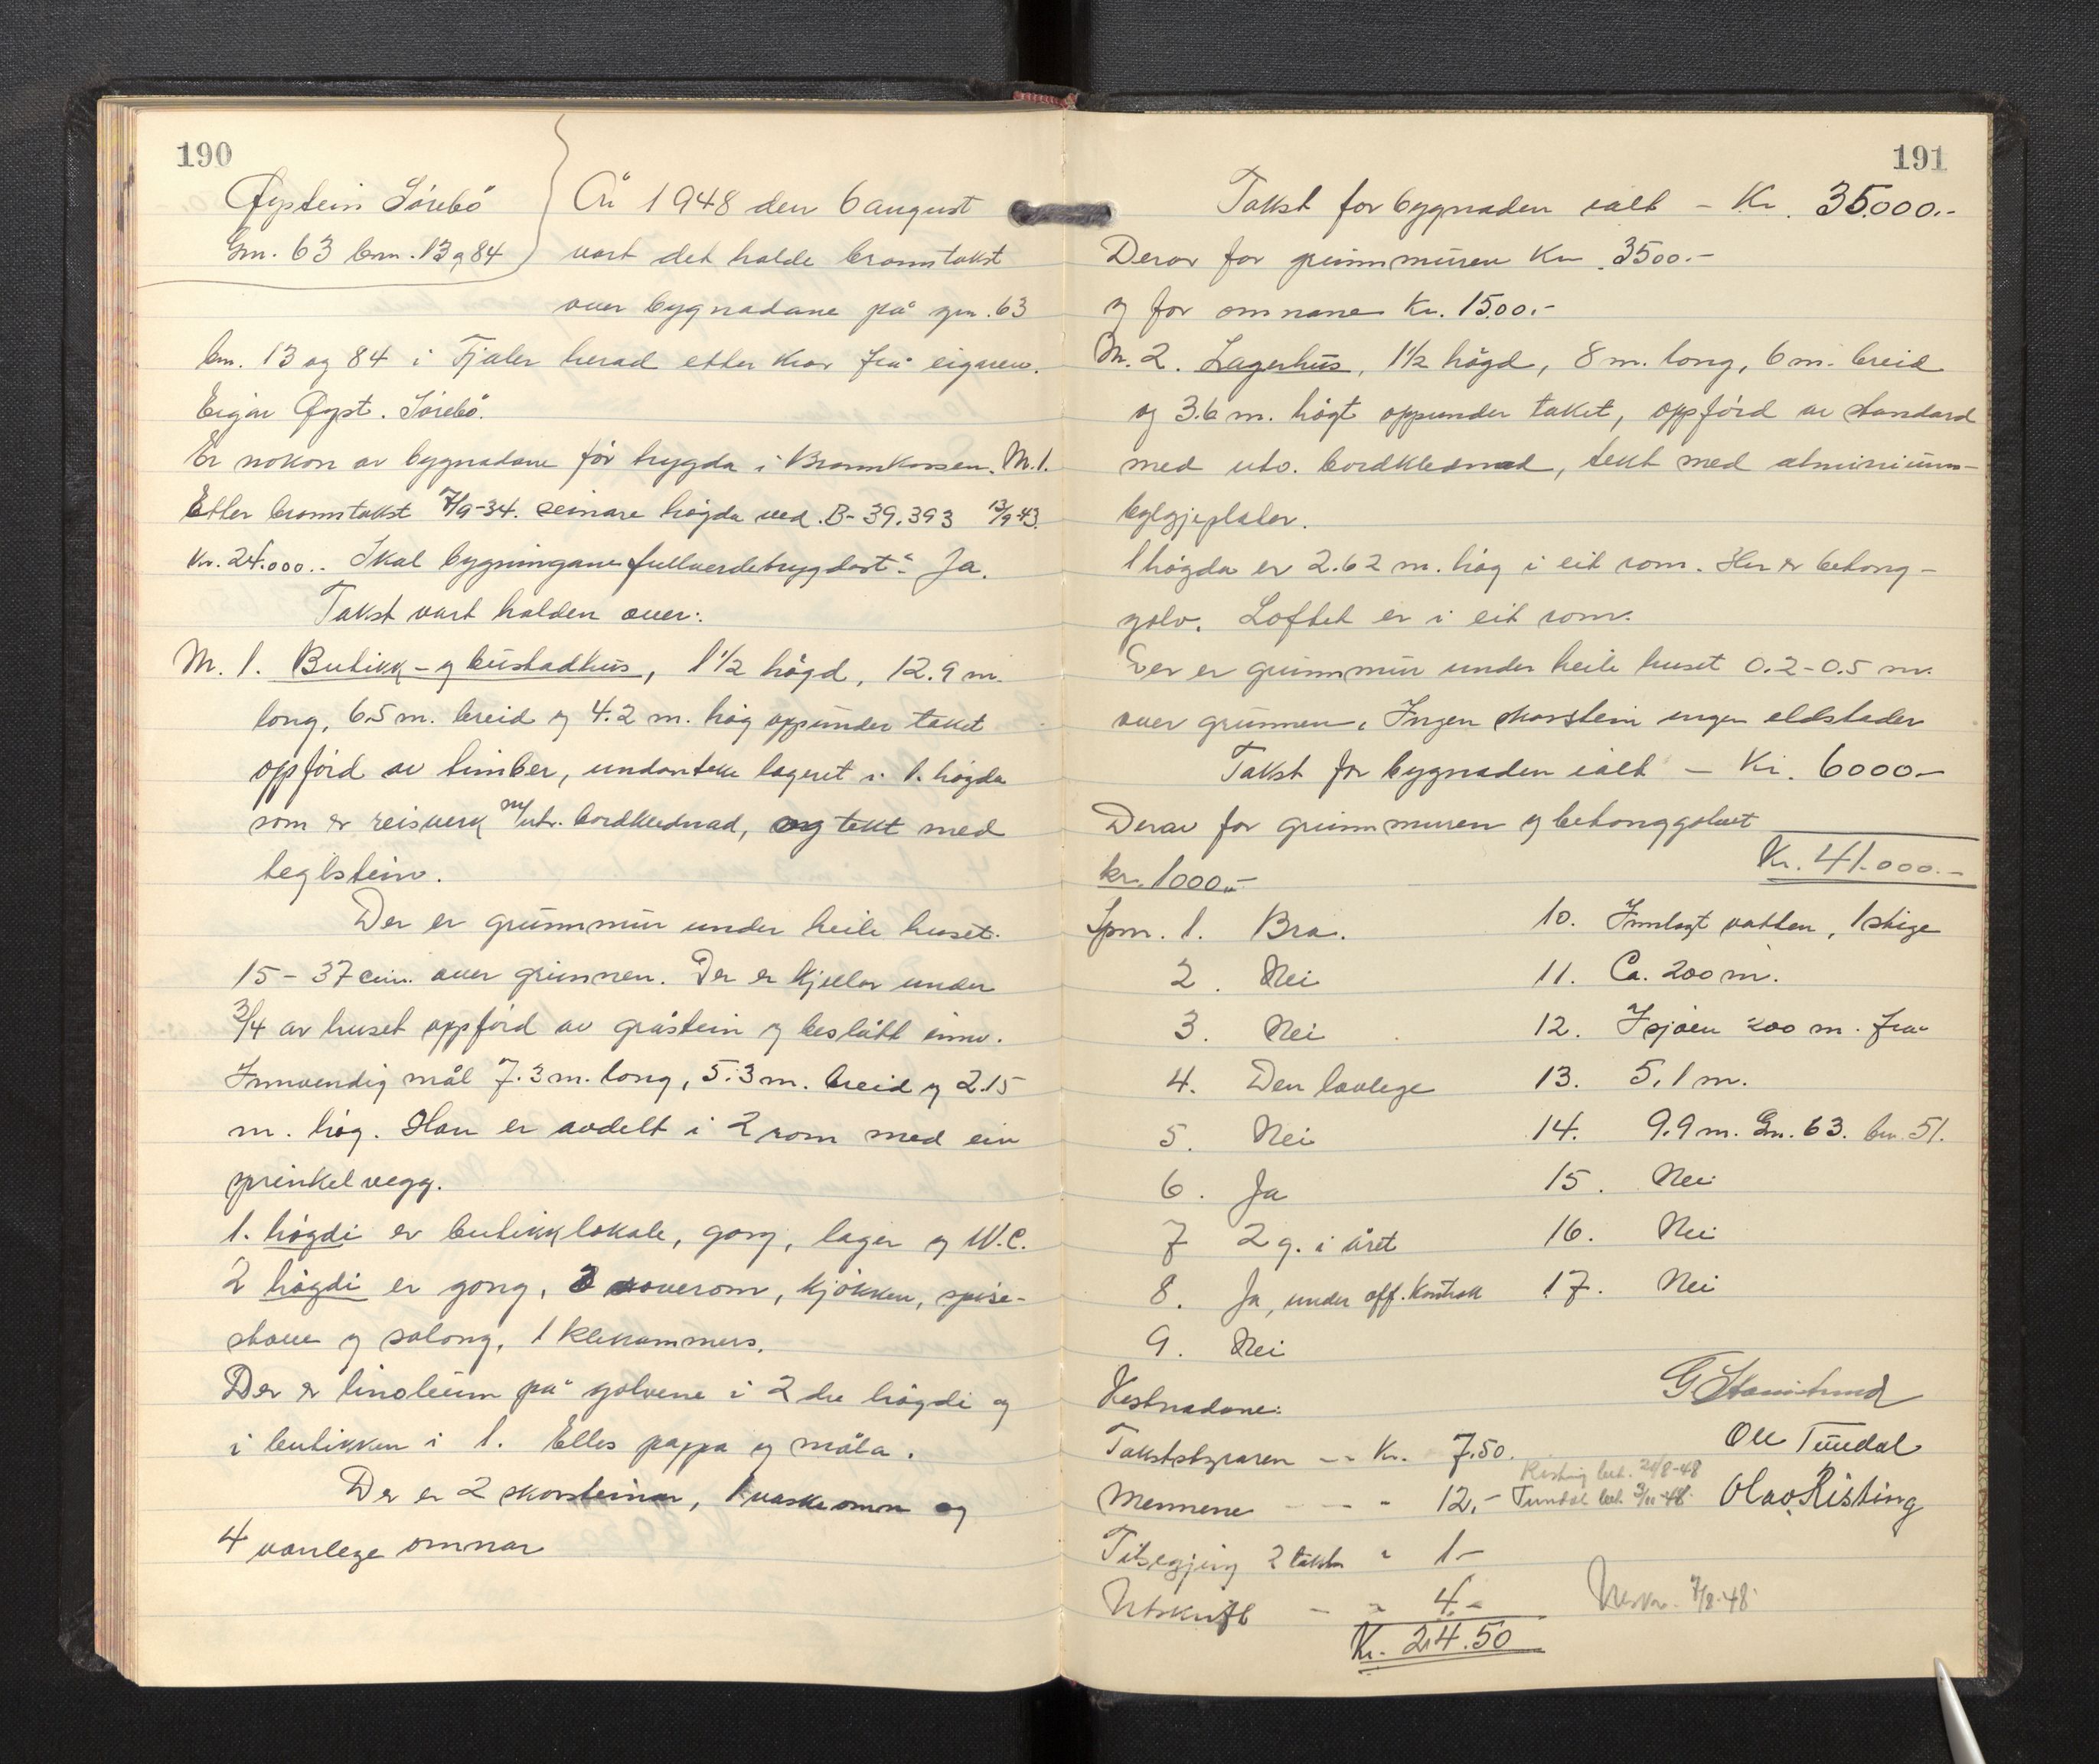 190
Øystein Sörebö
Gm. 63 bnr. 13 og 84
År 1948 den 6 august
vart det halde branntakst
over bygnadane på gm. 63
bn. 13 og 84 i Fjaler herad etter krav frå eigaren.
Eigar Øyst. Sörebö.
Er nokon av bygnadane för trygda i Brannkassen. M. 1.
Etter branntakst 7/9-34. seinare högda ved. B-39.393 13/9-43.
Kr. 24.000.- Skal bygningane fullverdetrygdast? Ja.
Takst vart halden over:
M. 1. Butikk- og bustadhus, 1 1/2 högd, 12.9 m.
long, 6.5 m. breid og 4.2 m. hög oppunder taket
oppförd av timber, undanteke lageret i 1. högda
som er reisverk m/utv. bordklednad, og tekt med
teglstein.
Der er grunnmur under heile huset.
15 - 37 cm. over grunnen. Der er kjellar under
3/4 av huset oppförd av gråstein og beslått innv.
Innvendig mål 7.3 m. long, 5.3 m. breid og 2.15
m. hög. Han er avdelt i 2 rom med ein
sprinkelvegg.
1. högdi er butikklokale, gang, lager og W.C.
2 högdi er gong, 3 soverom, kjökken, spise-
stove og salong, 1 klekammers.
Der er linoleum på golvene i 2 dre högdi og
i butikken i 1. Elles pappa og måla.
Der er 2 skorsteinar, 1 vaskeomn og
4 vanlege omnar
191
Takst for bygnaden ialt - Kr. 35.000.-
Derav for grunnmuren Kr. 3500.-
og for omnane Kr. 1500.-
M. 2. Lagerhus, 1 1/2 högd, 8 m. long, 6 m. breid
og 3.6 m. högt oppunder taket, oppförd av standard
med utv. bordkledned, tekt med aluminium-
bylgjeplater.
1 högda er 2.62 m. hög i eit rom. Her er betong-
golv. Loftet er i eit rom.
Der er grunnmur under heile huset 0.2-0.5 m.
over grunnen. Ingen skorstein ingen eldstader
Takst for bygnaden ialt - Kr. 6000.-
Derav for grunnmuren og betonggolvet
kr. 1000.-
Kr. 41.000.-
Spm. 1. Bra.
2. Nei
3. Nei
4. Den lovlege
5. Nei
6. Ja
7 2 g. i året
8. Ja, under off. kontroll
9. Nei
10. Innlagt vatten, 1 stige
11. Ca. 200 m.
12. I sjöen 200 m. frå
13. 5,1 m.
14. 9.9 m. Gn. 63. bn. 51.
15. Nei
16. Nei
17. Nei
Kostnadane:
Takststyraren -- Kr. 7.50.
Mennene --- 12.-
Tilsegjing 2 takstm " 1-
Utskrift - " 4.-
Kr. 24.50
Ole Tundal
Risting bet. 20/8-48
Tundal bet. 3/11-48.
Olav Risting
7/8-48.